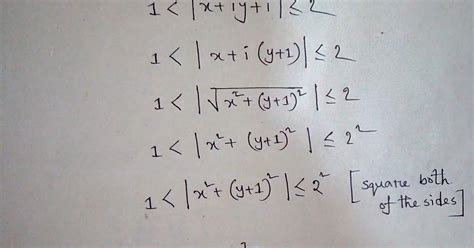 1 < |x+iy+i| ≤ 2
1 < | x + i (y+1)| ≤ 2
1 < | √(x² + (y+1)²) | ≤ 2
1 < | x² + (y+1)² | ≤ 2²
1 < |x² + (y+1)²| ≤ 2² [square both of the sides]